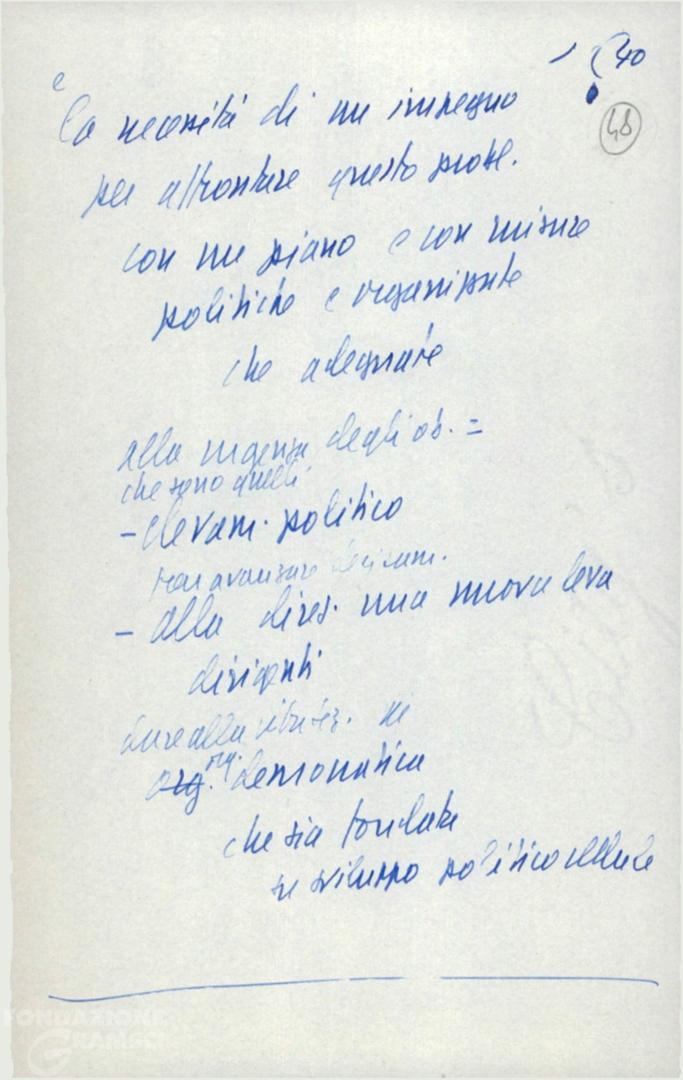 40
48
e
la necessità di un impegno
per affrontare questo probl.
con un piano e con misure
politiche e organizzate
che adeguate
alla urgenza degli ob. =
che sono quelli
- elevam. politico
far avanzare decisam.
- alla direz. una nuova leva
dirigenti
dare alla
org. org. democratica
che sia fondata
su sviluppo politico cellule
FONDAZIONE
GRAMSCI